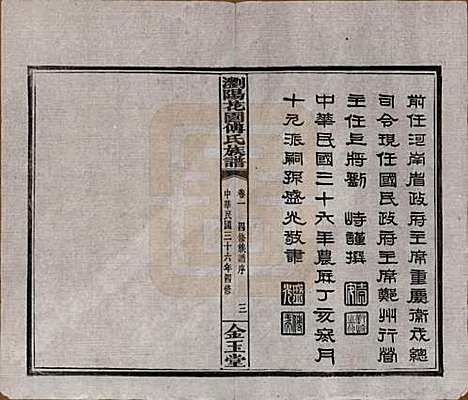 前任河南省政府主席重慶衞戍總
司令現任國民政府主席鄭州行營
主任上將劉　峙謹撰
中華民國三十六年農厤丁亥癸月
十九派嗣孫盛光敬書
瀏陽花園傅氏族譜
卷一　四修族譜序　三
中華民國三十六年四修
金玉堂